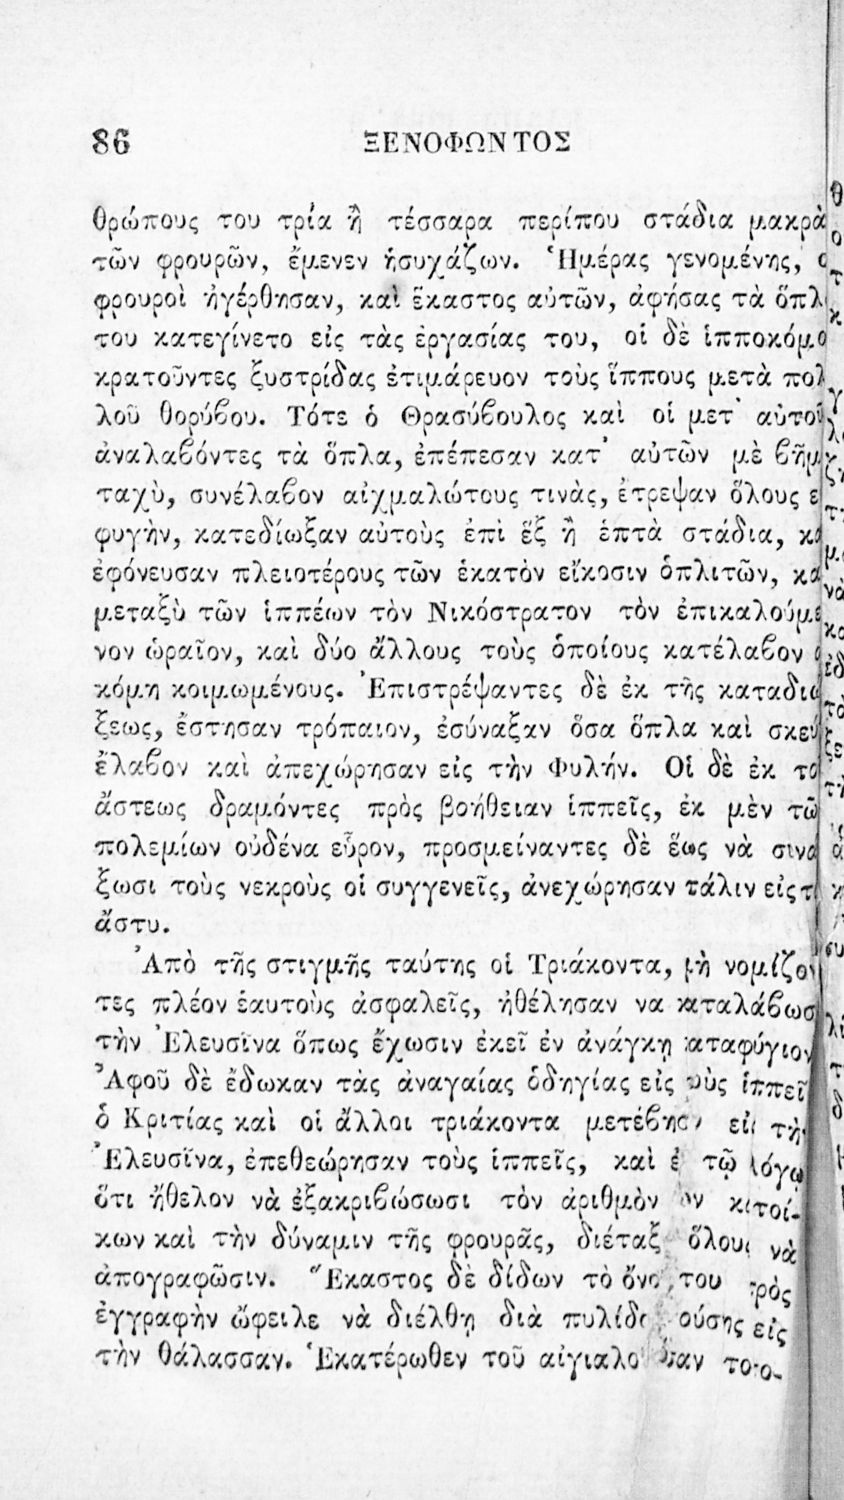 86 ΞΕΝΟΦΩΝΤΟΣ
θρώπους του τρία ἢ τέσσαρα περίπου στάδια μακρὰ
τῶν φρουρῶν, ἔμενεν ἡσυχάζων. Ἡμέρας γενομένης,
φρουροὶ ἠγέρθησαν, καὶ ἕκαστος αὐτῶν, ἀφήσας τὰ ὅπλ
του κατεγίνετο εἰς τὰς ἐργασίας του, οἱ δὲ ἱπποκόμο
κρατοῦντες ξυστρίδας ἐτιμάρευον τοὺς ἵππους μετὰ πολ
λοῦ θορύβου. Τότε ὁ Θρασύβουλος καὶ οἱ μετ' αὐτοῦ
ἀναλαβόντες τὰ ὅπλα, ἐπέπεσαν κατ' αὐτῶν μὲ βῆμ
ταχὺ, συνέλαβον αἰχμαλώτους τινὰς, ἔτρεψαν ὅλους ε
φυγὴν, κατεδίωξαν αὐτοὺς ἐπὶ ἓξ ἢ ἑπτὰ στάδια, κα
ἐφόνευσαν πλειοτέρους τῶν ἑκατὸν εἴκοσιν ὁπλιτῶν, κα
μεταξὺ τῶν ἱππέων τὸν Νικόστρατον τὸν ἐπικαλούμε
νον ὡραῖον, καὶ δύο ἄλλους τοὺς ὁποίους κατέλαβον
κόμη κοιμωμένους. Ἐπιστρέψαντες δὲ ἐκ τῆς καταδιώ
ξεως, ἔστησαν τρόπαιον, ἐσύναξαν ὅσα ὅπλα καὶ σκεύ
ἔλαβον καὶ ἀπεχώρησαν εἰς τὴν Φυλήν. Οἱ δὲ ἐκ το
ἄστεως δραμόντες πρὸς βοήθειαν ἱππεῖς, ἐκ μὲν τῶ
πολεμίων οὐδένα εὗρον, προσμείναντες δὲ ἕως νὰ συνά
ξωσι τοὺς νεκροὺς οἱ συγγενεῖς, ἀνεχώρησαν πάλιν εἰς τ
ἄστυ.
Ἀπὸ τῆς στιγμῆς ταύτης οἱ Τριάκοντα, μὴ νομίζον
τες πλέον ἑαυτοὺς ἀσφαλεῖς, ἠθέλησαν να καταλάβωσ
τὴν Ἐλευσῖνα ὅπως ἔχωσιν ἐκεῖ ἐν ἀνάγκῃ καταφύγιον
Ἀφοῦ δὲ ἔδωκαν τὰς ἀναγαίας ὁδηγίας εἰς τοὺς ἱππεῖ
ὁ Κριτίας καὶ οἱ ἄλλοι τριάκοντα μετέβησ εἰ τὴ
Ἐλευσῖνα, ἐπεθεώρησαν τοὺς ἱππεῖς, καὶ ἐ τῷ λόγῳ
ὅτι ἤθελον νὰ ἐξακριβώσωσι τὸν ἀριθμὸν ν κατοί-
κων καὶ τὴν δύναμιν τῆς φρουρᾶς, διέταξ ὅλους νὰ
ἀπογραφῶσιν. Ἕκαστος δὲ δίδων τὸ ὄνο του πρὸς
ἐγγραφὴν ὤφειλε νὰ διέλθῃ διὰ πυλίδο ούσης εἰς
τὴν θάλασσαν. Ἑκατέρωθεν τοῦ αἰγιαλο